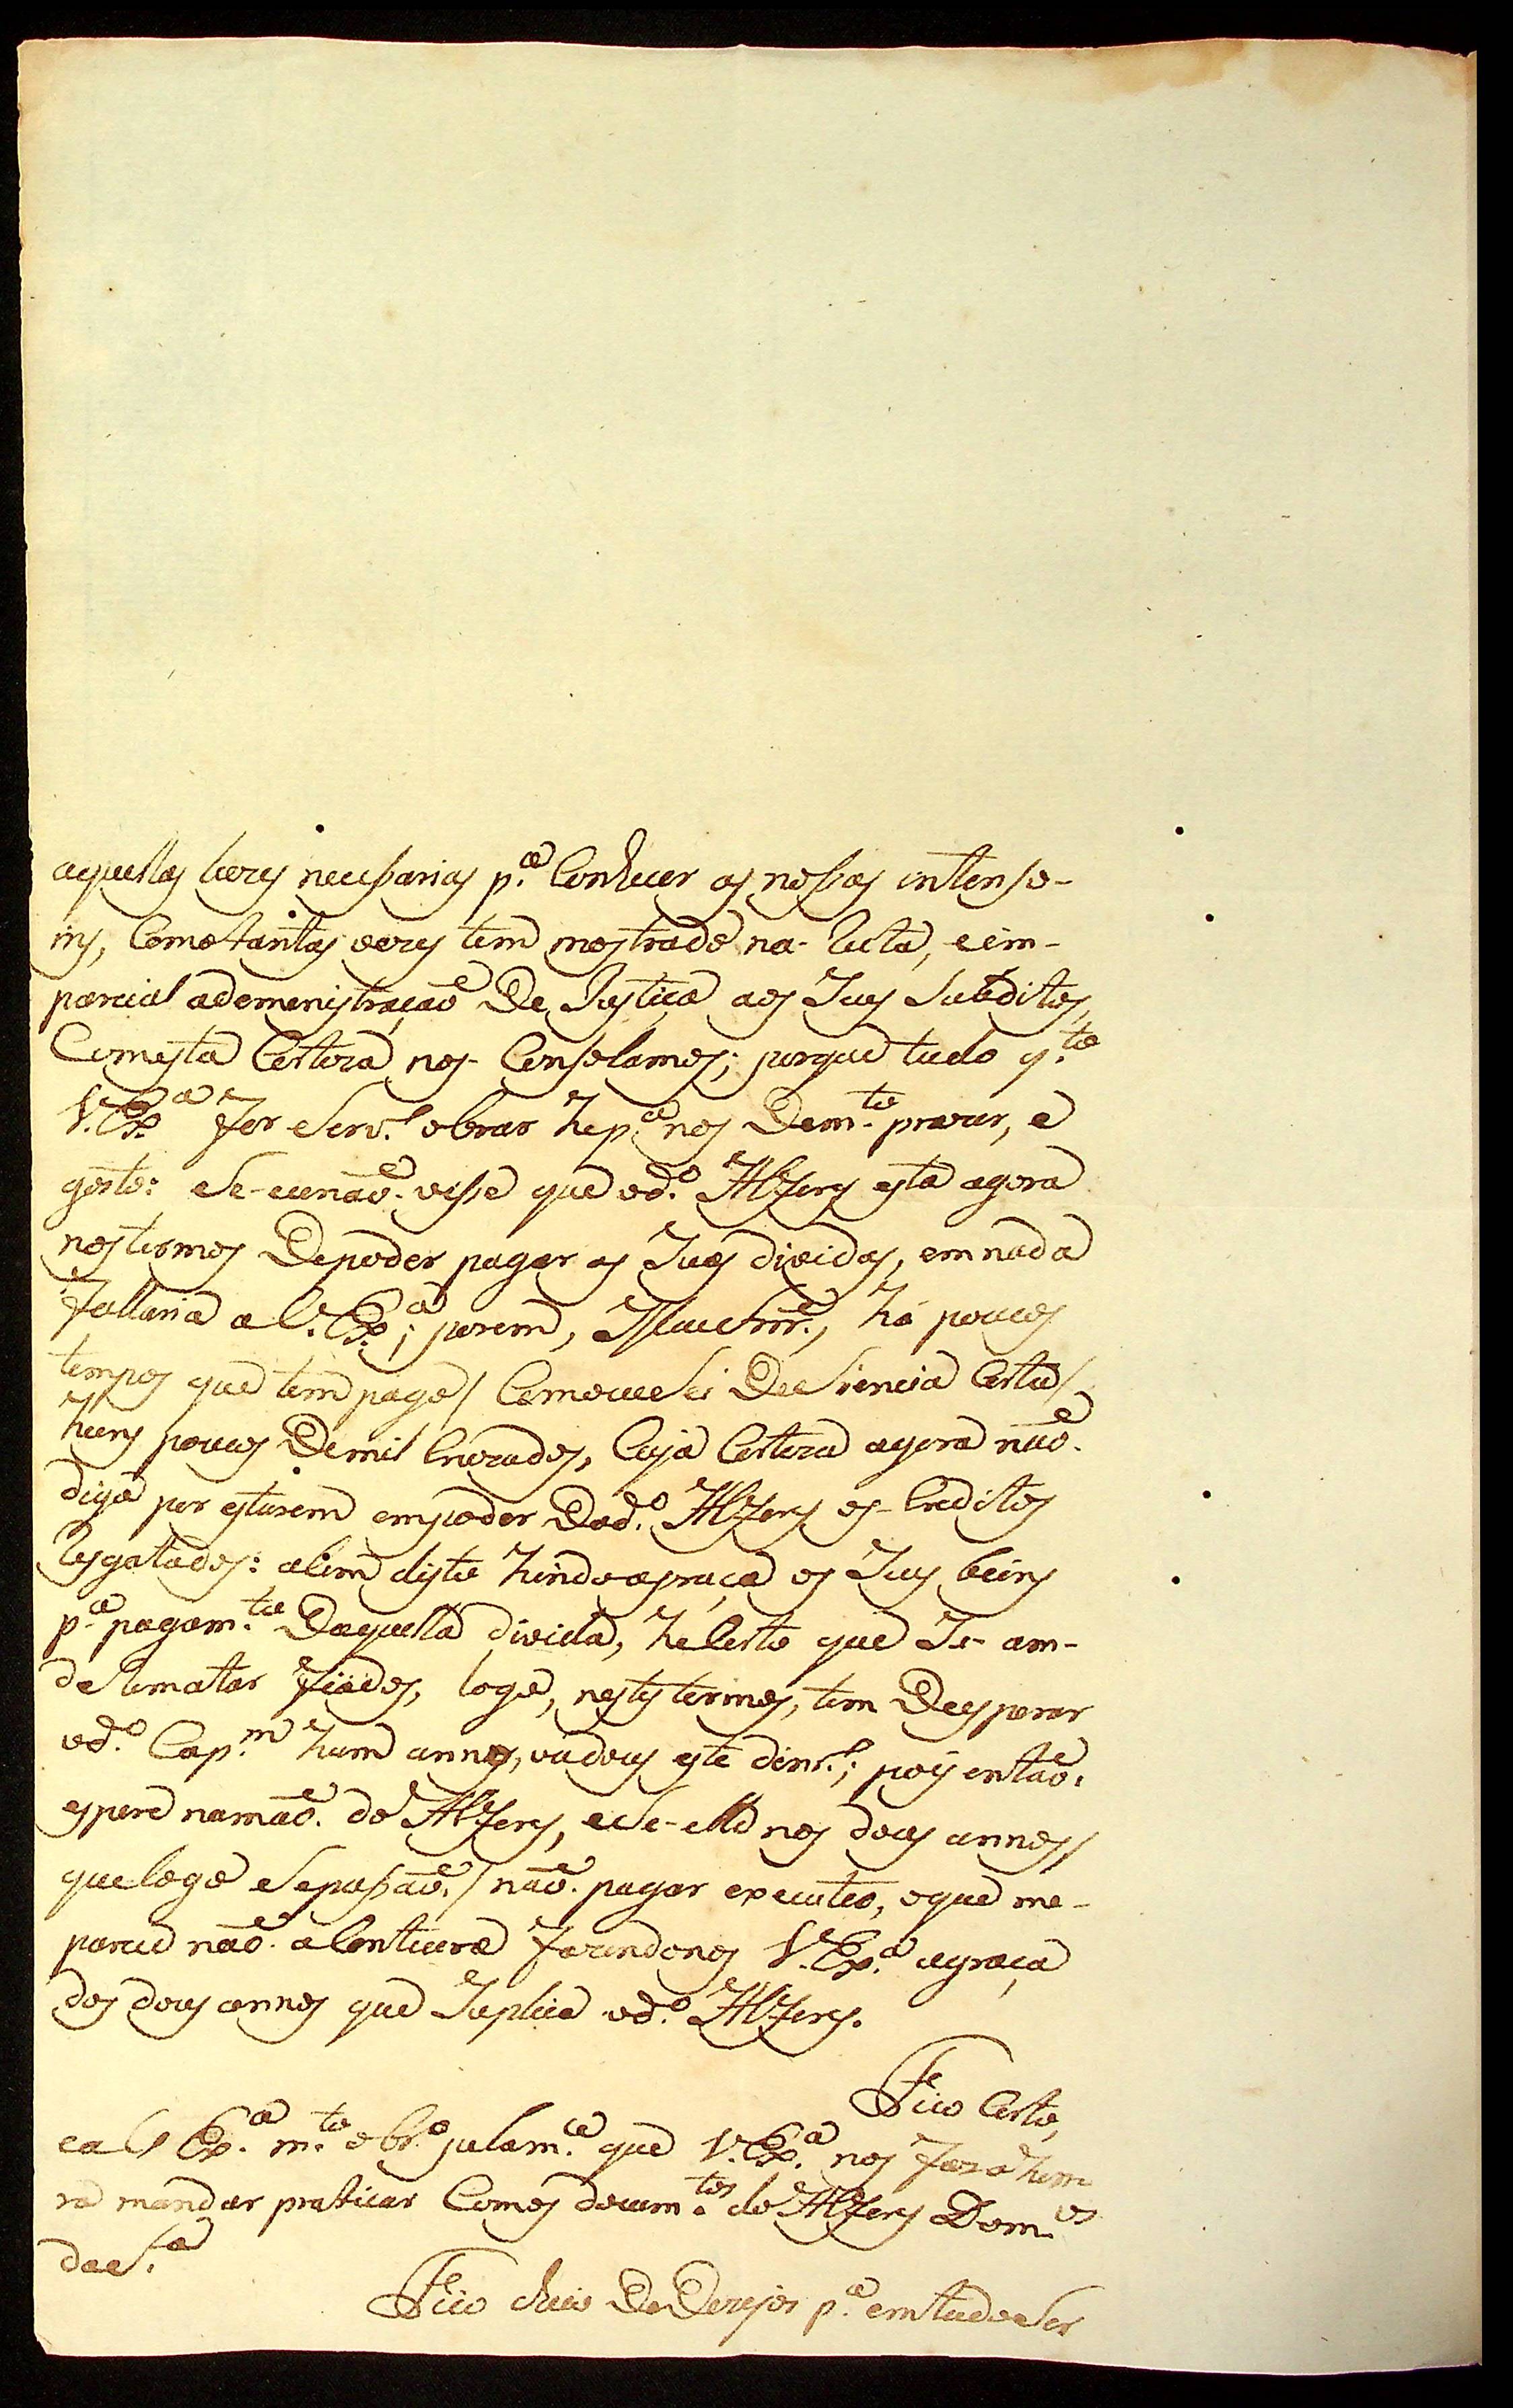 aquellas luzes necessarias p.ª Conhecer as nossas intenso-
ins, Como tantas vezes tem mostrado na- lecta, e im-
parcial ademenistração De Justiça aos Seus Subditos,
Comesta Certeza nos Consolamos; porque tudo q.to
V. Ex.ª for Serv.º obrar he p.ª nos Dem.to prazer, e
gosto: e Se- eu não visse que o d.º Alferes esta agora
nos termos De poder pagar as Suas dividas, em nada
fallaria a V. Ex.ª; porem, Há poucos
tempos que tem pago/ Como eu Sei De Siencia Certa/
huns poucos De mil Cruzados, Cuja Certeza agora não
digo por estarem em poder Do d.º Alferes os Creditos
Resgatados: alem disto hindo a praça os Seus beins
p.ª pagam.to Daquella divida, he Certo que Se- am-
de Rematar fiados, logo, nestes termos, tem De esperar
o d.º Cap.m hum anno, ou dous este dinr.º; pois então
espere na mão do Alferes, e Se- elle nos dous annos/
que logo Se passão/ não pagar executeo, o que me-
parece não a Contecerá fazendonos V. Ex.ª a graça
dos dous annos que Suplica o d.º Alferes.
Fico Certo,
e a V. Ex.ª m.to obr.º que V. Ex.ª nos fará
ra mandar praticar Comos docum.tos do Alferes Dom.os
da S.ª
Fico cheio De Dezejos p.ª em tudo Ser